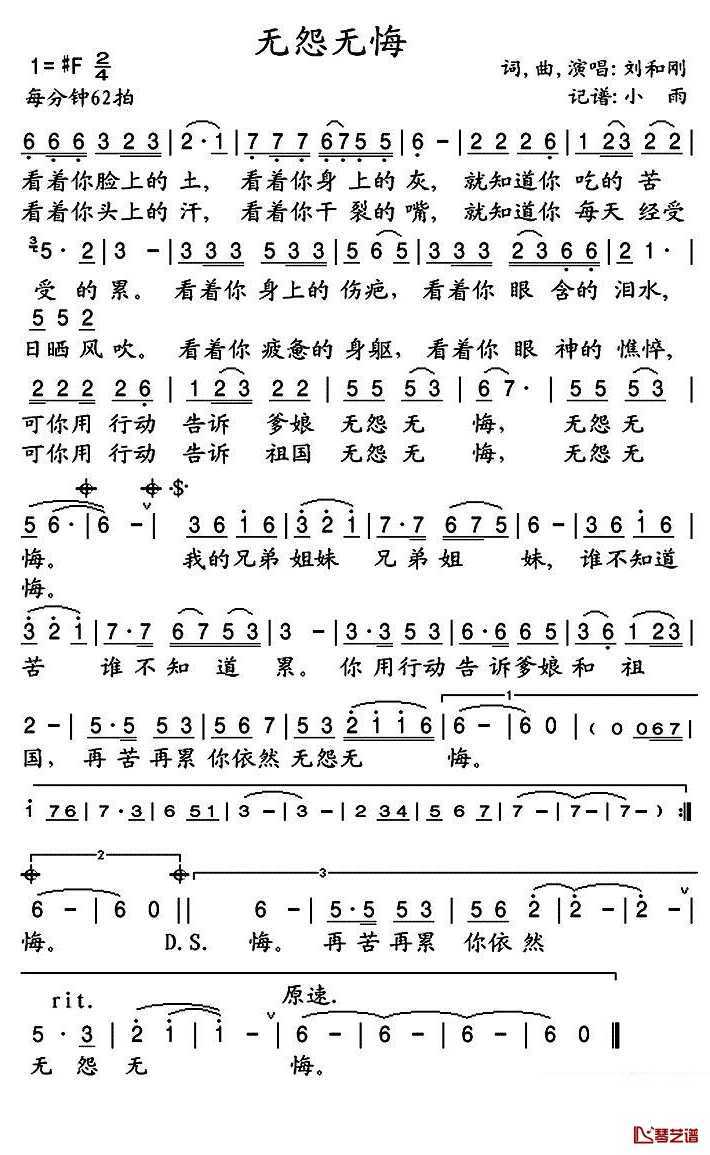 无怨无悔
1=♯F 2/4 词,曲,演唱:刘和刚
每分钟62拍 记谱:小 雨
6 6 6 3 2 3 | 2 · 1 | 7 7 7 6 7 5 5 | 6 - | 2 2 2 2 6 | 1 2 3 2 2 |
看着你脸上的 土, 看着你身 上的 灰, 就知道你 吃的 苦
看着你头上的 汗, 看着你干 裂的 嘴, 就知道你 每天 经受
3 5 · 2 | 3 - | 3 3 3 3 5 3 3 | 5 6 5 | 3 3 3 2 3 6 6 | 2 1 · |
受 的 累。 看着你 身上的 伤疤, 看着你 眼 含的 泪水,
5 5 2
日晒 风 吹。 看着你 疲惫的 身躯, 看着你 眼 神的 憔悴,
2 2 2 2 6 | 1 2 3 2 2 | 5 5 5 3 | 6 7 · | 5 5 5 3 |
可你用 行动 告诉 爹娘 无怨 无 悔, 无怨 无
可你用 行动 告诉 祖国 无怨 无 悔, 无怨 无
5 6 · | 6 - | 3 6 1 6 | 3 2 1 | 7 · 7 6 7 5 | 6 - | 3 6 1 6 |
悔。 我的兄弟 姐妹 兄 弟 姐 妹, 谁不知道
悔。
3 2 1 | 7 · 7 6 7 5 3 | 3 - | 3 · 3 5 3 | 6 · 6 6 5 | 3 6 1 2 3 |
苦 谁 不 知 道 累。 你 用行动 告 诉爹娘 和 祖
1
2 - | 5 · 5 5 3 | 5 6 7 | 5 3 2 1 1 6 | 6 - | 6 0 | ( 0 0 6 7 |
国, 再 苦 再累 你依然 无怨无 悔。
1 7 6 | 7 · 3 | 6 5 1 | 3 - | 3 - | 2 3 4 | 5 6 7 | 7 - | 7 - | 7 - ) :||
2 3
6 - | 6 0 || 6 - | 5 · 5 5 3 | 5 6 2 | 2 - | 2 - |
悔。 D.S. 悔。 再 苦 再累 你依 然
rit. 原速.
5 · 3 | 2 1 | 1 - | 6 - | 6 - | 6 - | 6 0 ||
无 怨 无 悔。
琴艺谱